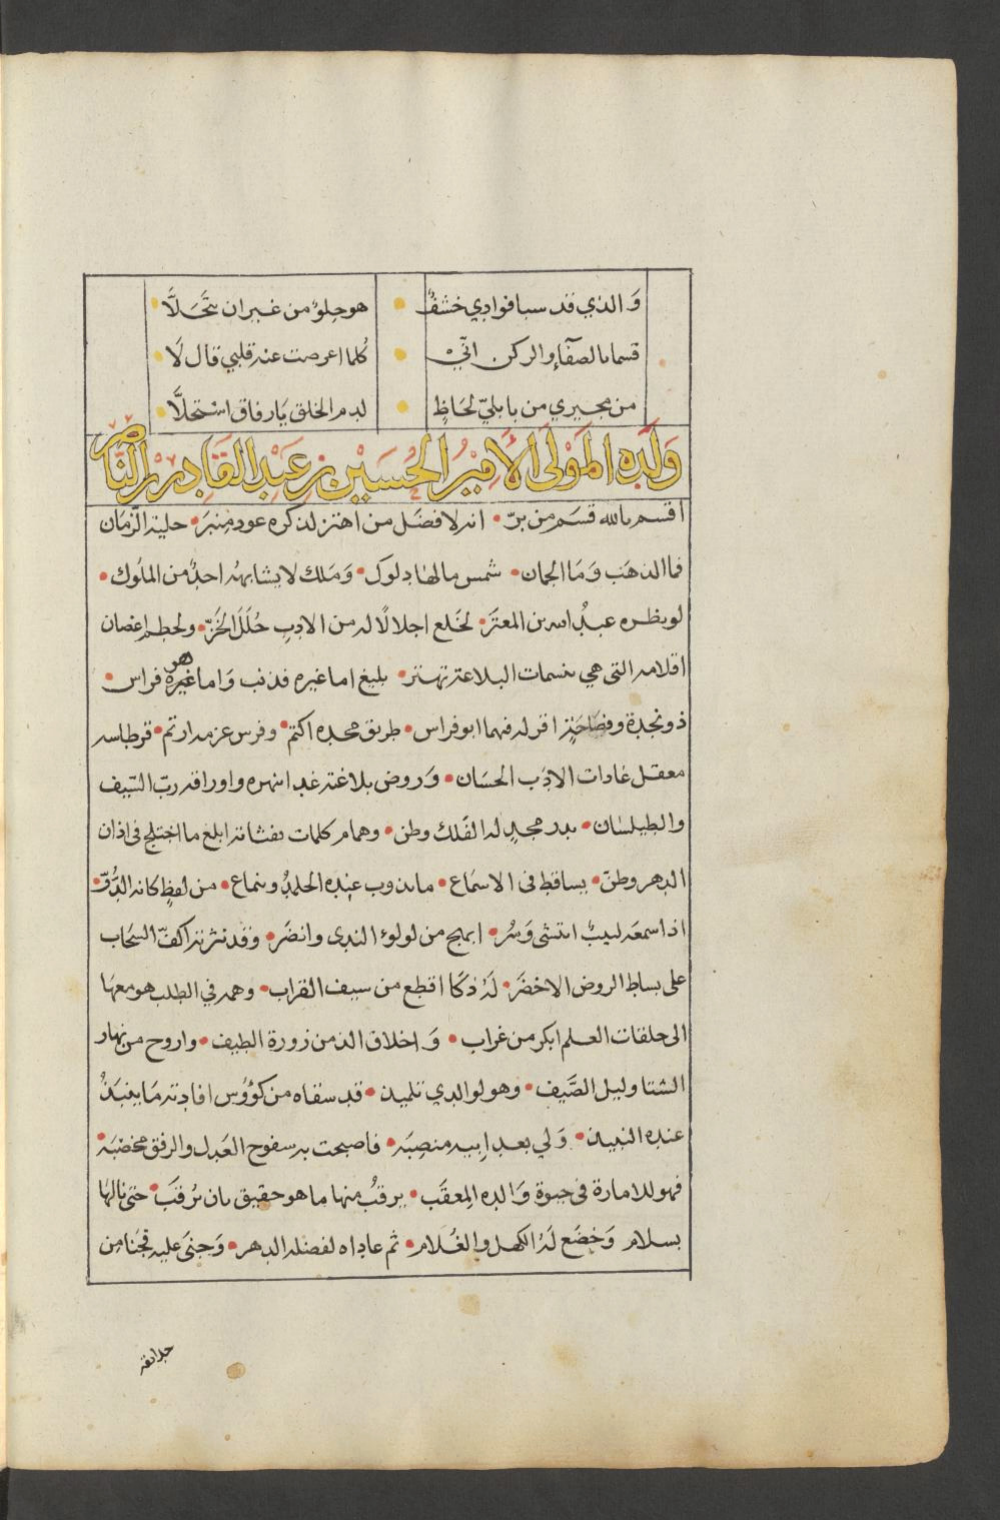 وَالذي قد سبا فوادي خشفٌ • هو حلوٌ من غير ان يتَحَلَّا
قسما بالصفآء والركن انّي • كلما اعرضت عنه قلبي قال لَا
من مجيري من بابليّ لحاظٍ • لدم الخلق يَا رفاق استحلَّا
وَلَدُه المَوْلَى الأَمِيْرُ الحُسَيْن بن عَبْد القَادِر بن النَّاصِر
اقسم بالله قسَم من برّ • انه لا فضَل من اهتز لذكره عود منبَر • حلية الزمَان
فما الذهَب وَمَا الجمان • شمس ما لهَا دلوك • وَمَلك لا يشابهه احدٌ من الملُوك •
لو نظره عبدُ الله بن المعتز • لخلع اجلالًا له من الادب حُلَلَ الخَزّ • ولحطم اغصان
اقلامه التى هي بنسمات البلاغة تهتز • بليغ اما غيره فذنب وَاما هو فراس •
ذو نجدة وفصَاحَةٍ اقر له فيهما ابو فراس • طريق مجده اكتم • وفرس عزمه ارتم • قرطاسه
معقل غادات الادَب الحسَان • وَروض بلاغته غدا نهره واوراقه ربّ السَيف
والطيلسَان • بدر مجدٍ له الفَلك وطن • وهمام كلمات نفثاته ابلغ ما اختلج فى اذان
الدهر وطنّ • يساقط فى الاسمَاع • ما يذوب عنده الجلمدُ وينماع • من لفظٍ كانه الدُّرّ •
اذا سمعَه لبيبٌ انتشى وَسُر • ابهج من لولوء الندى وانضَر • وقد نثرته اكفّ السحَاب
على بساط الروض الاخضَر • لَهُ ذكَا اقطع من سيف القراب • وهمه في الطلب هو معهَا
الى حلقات العلم ابكر من غراب • وَاخلاق الذ من زورة الطيف • واروح من نهار
الشتا وليل الصَّيف • وهو لوالدي تلميذ • قد سقاه من كؤوس افادته مَا ينبَذُ
عنده النبيذ • وَلي بعد ابيه منصِبَه • فاصبحت به سفوح العَدل والرفق مخضبَه •
فهو للامارة فى حبوة وَالده المعقَب • يرقبُ منها ما هو حقيق بان يُرقَبَ • حتى نالهَا
بسلام وَخضَع لَهُ الكهل والغُلام • ثم عاداه لفضله الدهر • وَجنَى عليه فجَنَا من
حدايقه